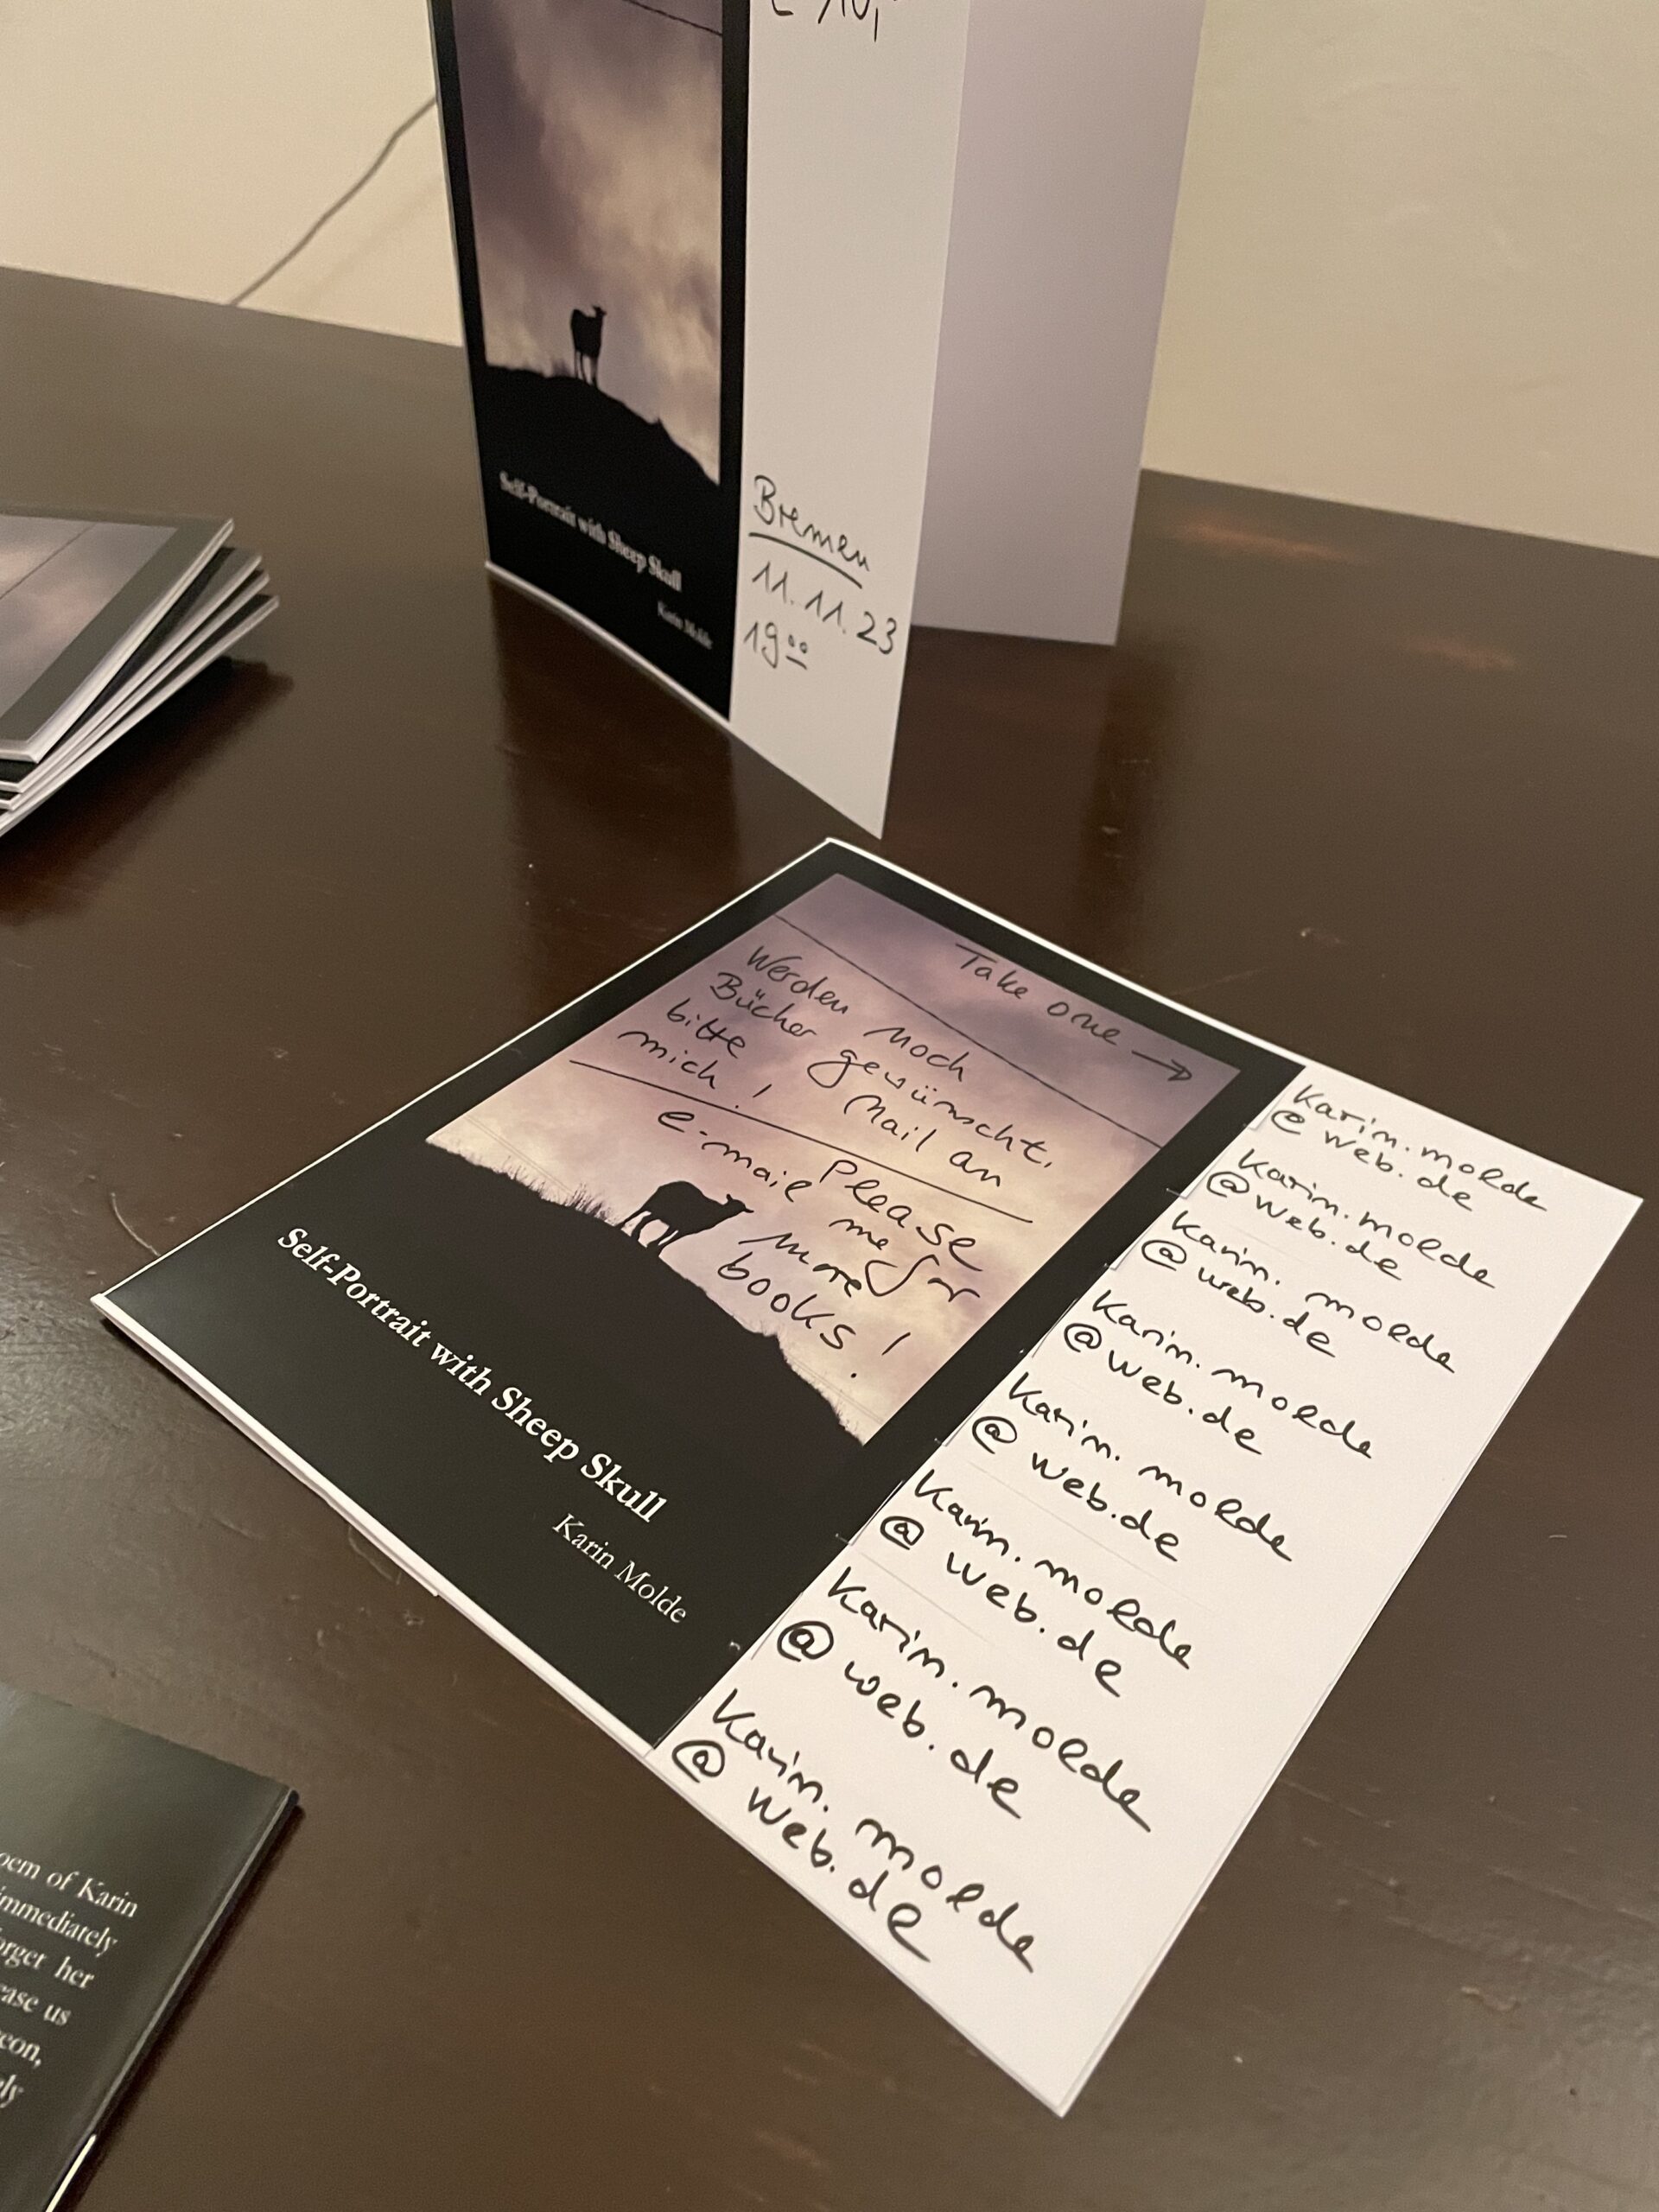 Self-Portrait with Sheep Skull
Karin Molde
Bremen
11.11.23
19⁰⁰
Take one →
Werden noch
Bücher gewünscht,
bitte Mail an
mich!
Please
e-mail me for
more
books!
Self-Portrait with Sheep Skull
Karin Molde
Karin.molde
@web.de
Karin.molde
@web.de
Karin.molde
@web.de
Karin.molde
@web.de
Karin.molde
@web.de
Karin.molde
@web.de
Karin.molde
@web.de
Karin.molde
@web.de
of Karin
immediately
her
us